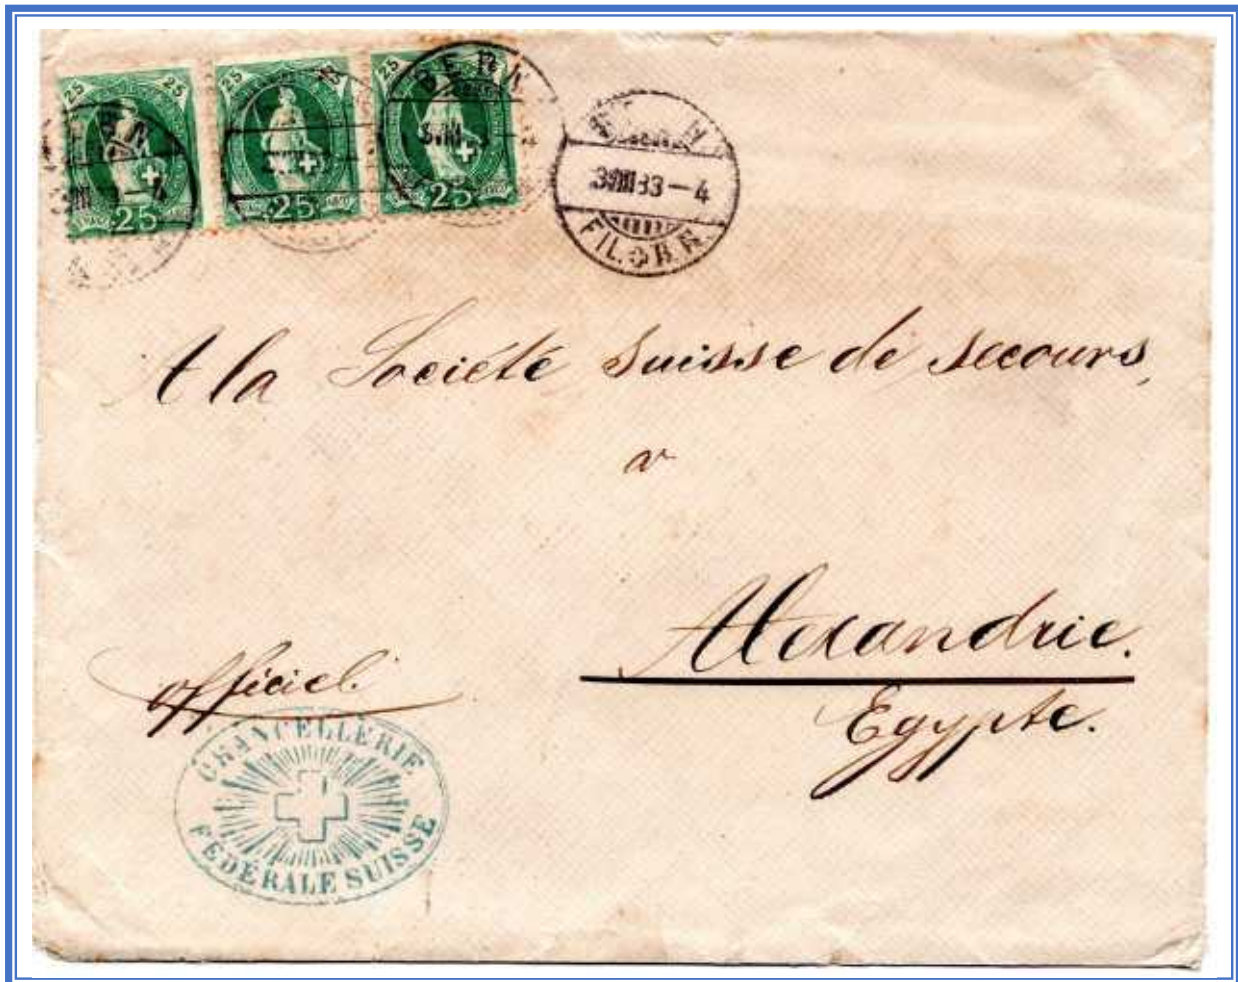 25 25
25 25
25 25
25
25
25
BERN
FIL. B.R.
A la Société suisse de secours,
a
Alexandrie.
Egypte.
officiel.
CHANCELLERIE
FÉDÉRALE SUISSE